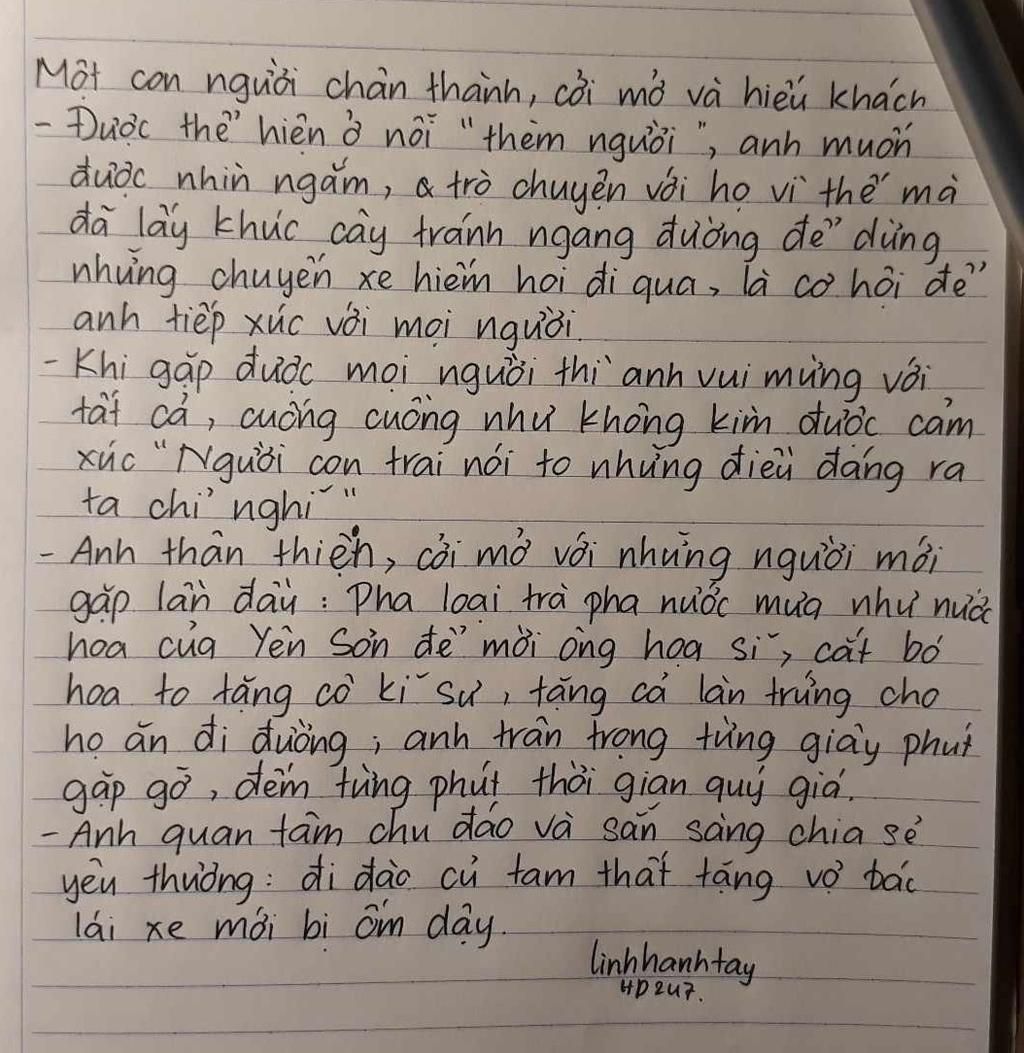 Một con người chân thành, cởi mở và hiếu khách
- Được thể hiện ở nỗi "thèm người", anh muốn
được nhìn ngắm, & trò chuyện với họ vì thế mà
đã lấy khúc cây tránh ngang đường để dừng
những chuyến xe hiếm hoi đi qua, là cơ hội để
anh tiếp xúc với mọi người.
- Khi gặp được mọi người thì anh vui mừng với
tất cả, cuống cuồng như không kìm được cảm
xúc "Người con trai nói to những điều đáng ra
ta chỉ nghĩ"
- Anh thân thiện, cởi mở với những người mới
gặp lần đầu : Pha loại trà pha nước mưa như nước
hoa của Yên Sơn để mời ông họa sĩ, cắt bó
hoa to tặng cô kĩ sư, tặng cả làn trứng cho
họ ăn đi đường ; anh trân trọng từng giây phút
gặp gỡ, đếm từng phút thời gian quý giá.
- Anh quan tâm chu đáo và sẵn sàng chia sẻ
yêu thương : đi đào củ tam thất tặng vợ bác
lái xe mới bị ốm dậy.
linhhanhtay
HD247.